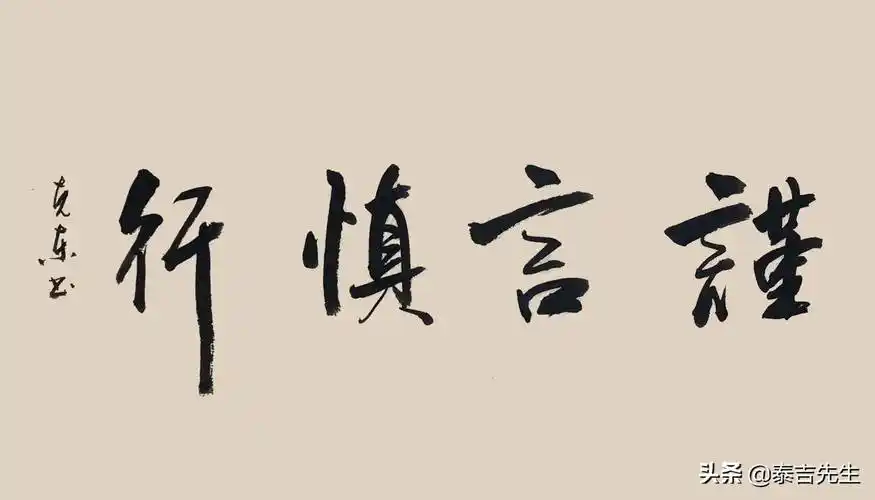 謹言慎行
克东书
头条 @泰吉先生